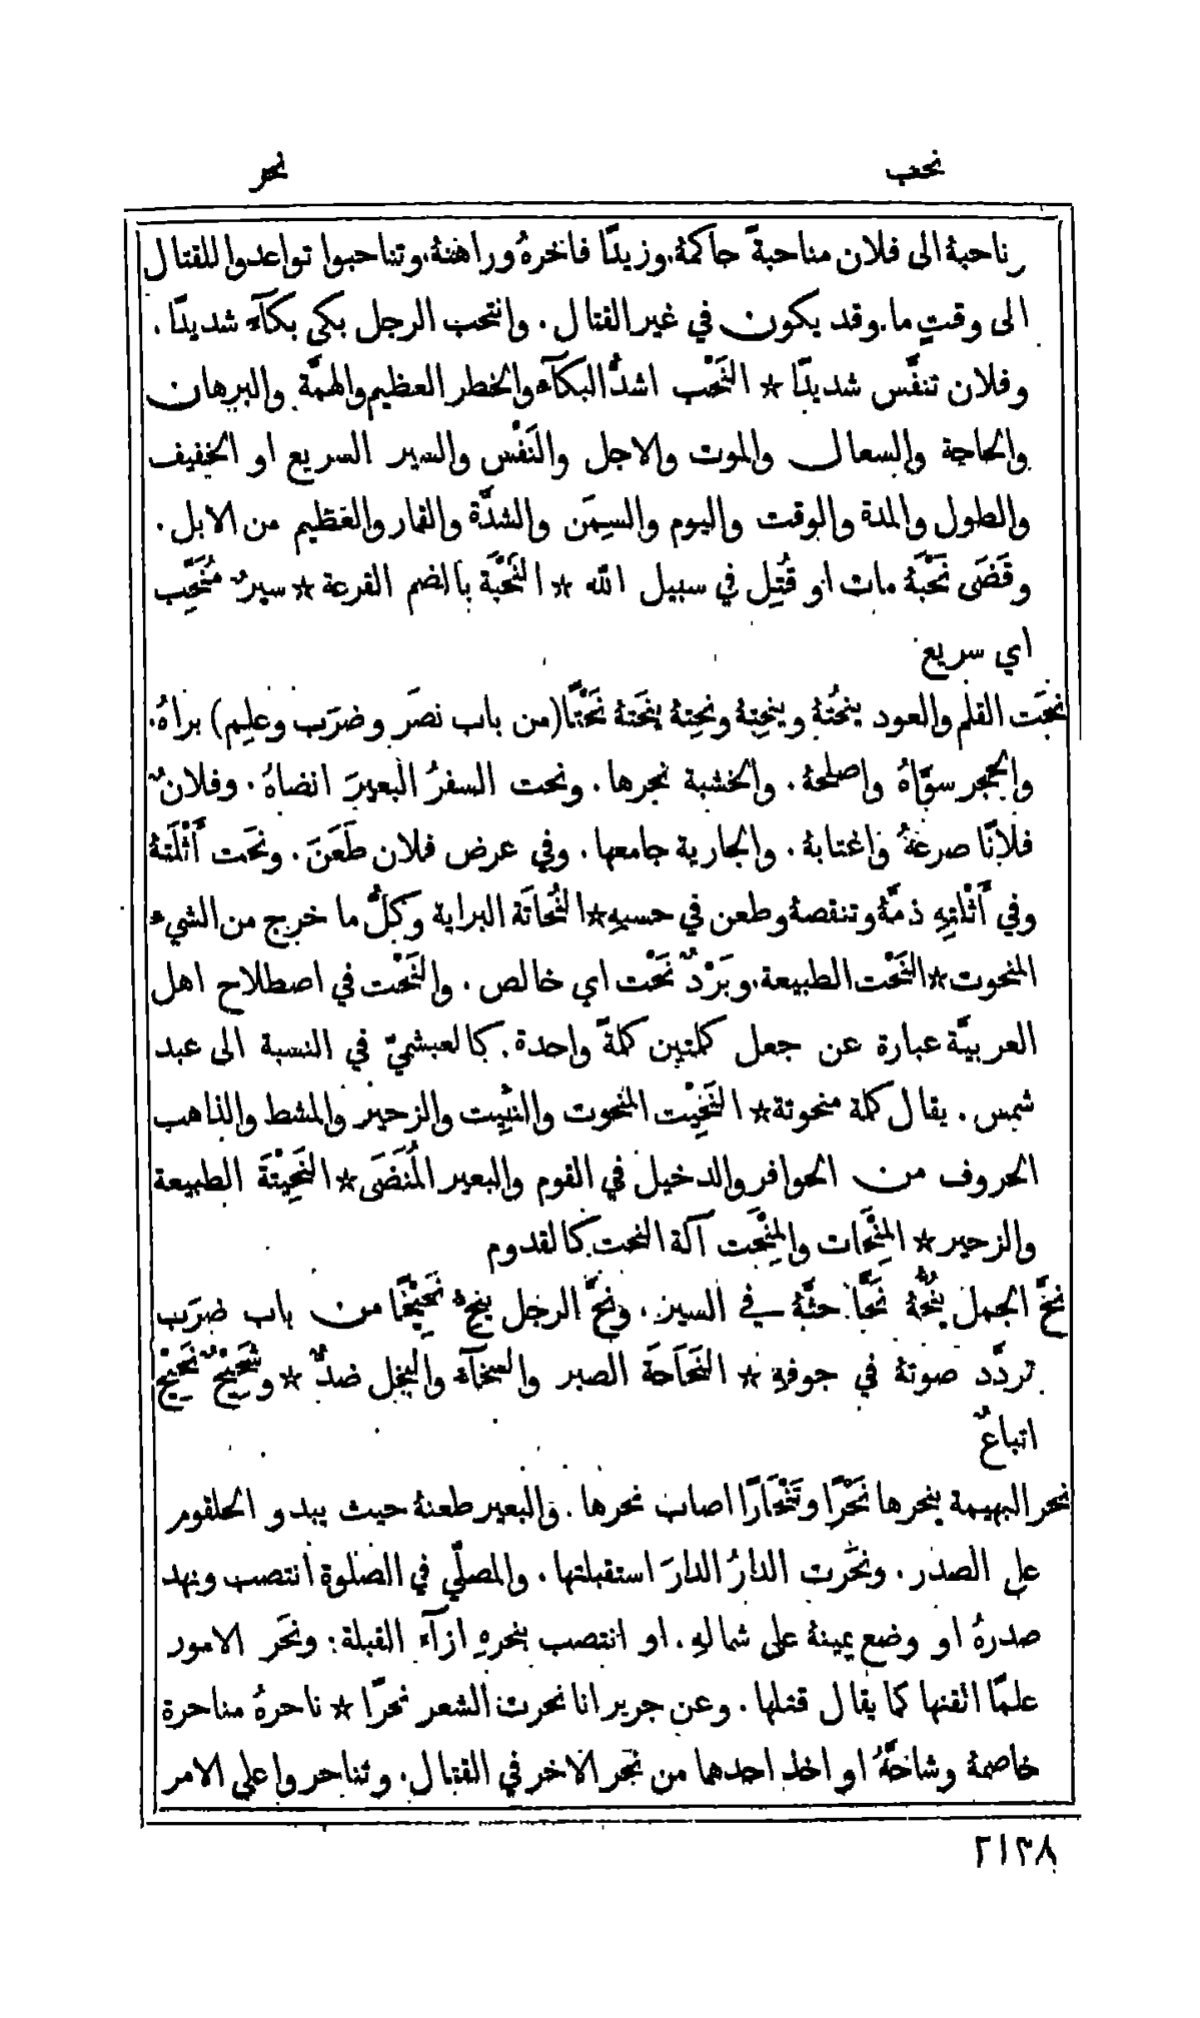 نحب
نحر
ناحبهُ الى فلان مناحبةً حاكمهُ. وزيدًا فاخرهُ وراهنهُ. وتناحبوا تواعدوا للقتال
الى وقتٍ ما. وقد يكون في غير القتال. وانتحب الرجل بكى بكآءً شديدًا.
وفلان تنفَّس شديدًا ☆ النَحْب اشدُّ البكآء والخطر العظيم والهمَّة والبرهان
والحاجة والسعال والموت والاجل والنَفْس والسير السريع او الخفيف
والطول والمدة والوقت واليوم والسِمَن والشدَّة والقمار والعظيم من الابل.
وقَضَى نَحْبَهُ مات او قُتِل في سبيل الله ☆ النُحْبَة بالضم القرعة ☆ سيرٌ مُنَحِّب
اي سريع
نحَت القلم والعود ينحُتهُ وينحِتهُ ونحِتهُ ينحَتهُ نَحْتًا (من باب نصَر وضرَب وعلِم) براهُ.
والحجر سوَّاهُ واصلحهُ. والخشبة نجرها. ونحت السفرُ البعيرَ انضاهُ. وفلانٌ
فلانًا صرعهُ واغتابهُ. والجارية جامعها. وفي عرض فلان طَعَنَ. ونحَت أَثْلَتَهُ
وفي أَثْلتِهِ ذمَّهُ وتنقصهُ وطعن في حسبهِ ☆ النُحَاتَة البراية وكلُّ ما خرج من الشيء
المنحوت ☆ النَحْت الطبيعة. وبَرْدٌ نَحْت اي خالص. والنَحْت في اصطلاح اهل
العربيَّة عبارة عن جعل كلمتين كلمةً واحدة. كالعبشميّ في النسبة الى عبد
شمس. يقال كلمة منحوتة ☆ النَحِيْت المنحوت والنئِيت والزحير والمشط والذاهب
الحروف من الحوافر والدخيل في القوم والبعير المُنَضَى ☆ النَحِيْتَة الطبيعة
والزحير ☆ المِنْحَات والمِنْحَت آلة النحت كالقدوم
نحَّ الجمل يَنُحُّهُ نَحًّا حثَّهُ في السير. ونحَّ الرجل ينِحُّ نَحِيْحًا من باب ضرَب
تردَّد صوتهُ في جوفهِ ☆ النَحَاحَة الصبر والسخآء والبخل ضدٌّ ☆ وشَحِيْحٌ نَحِيْحٌ
اتباعٌ
نحر البهيمة ينحرها نَحْرًا وتَنْحَارًا اصاب نحرها. والبعير طعنهُ حيث يبدو الحلقوم
على الصدر. ونحَرت الدارُ الدارَ استقبلتها. والمصلّي في الصلوة انتصب ونهد
صدرهُ او وضع يمينهُ على شمالهِ. او انتصب بنحرهِ ازآء القبلة. ونحَر الامور
علمًا اتقنها كما يقال قتلها. وعن جرير انا نحرت الشعر نحرًا ☆ ناحرهُ مناحرة
خاصمهُ وشاحَّهُ او اخذ احدهما من نحر الاخر في القتال. وتناحروا على الامر
٢١٣٨